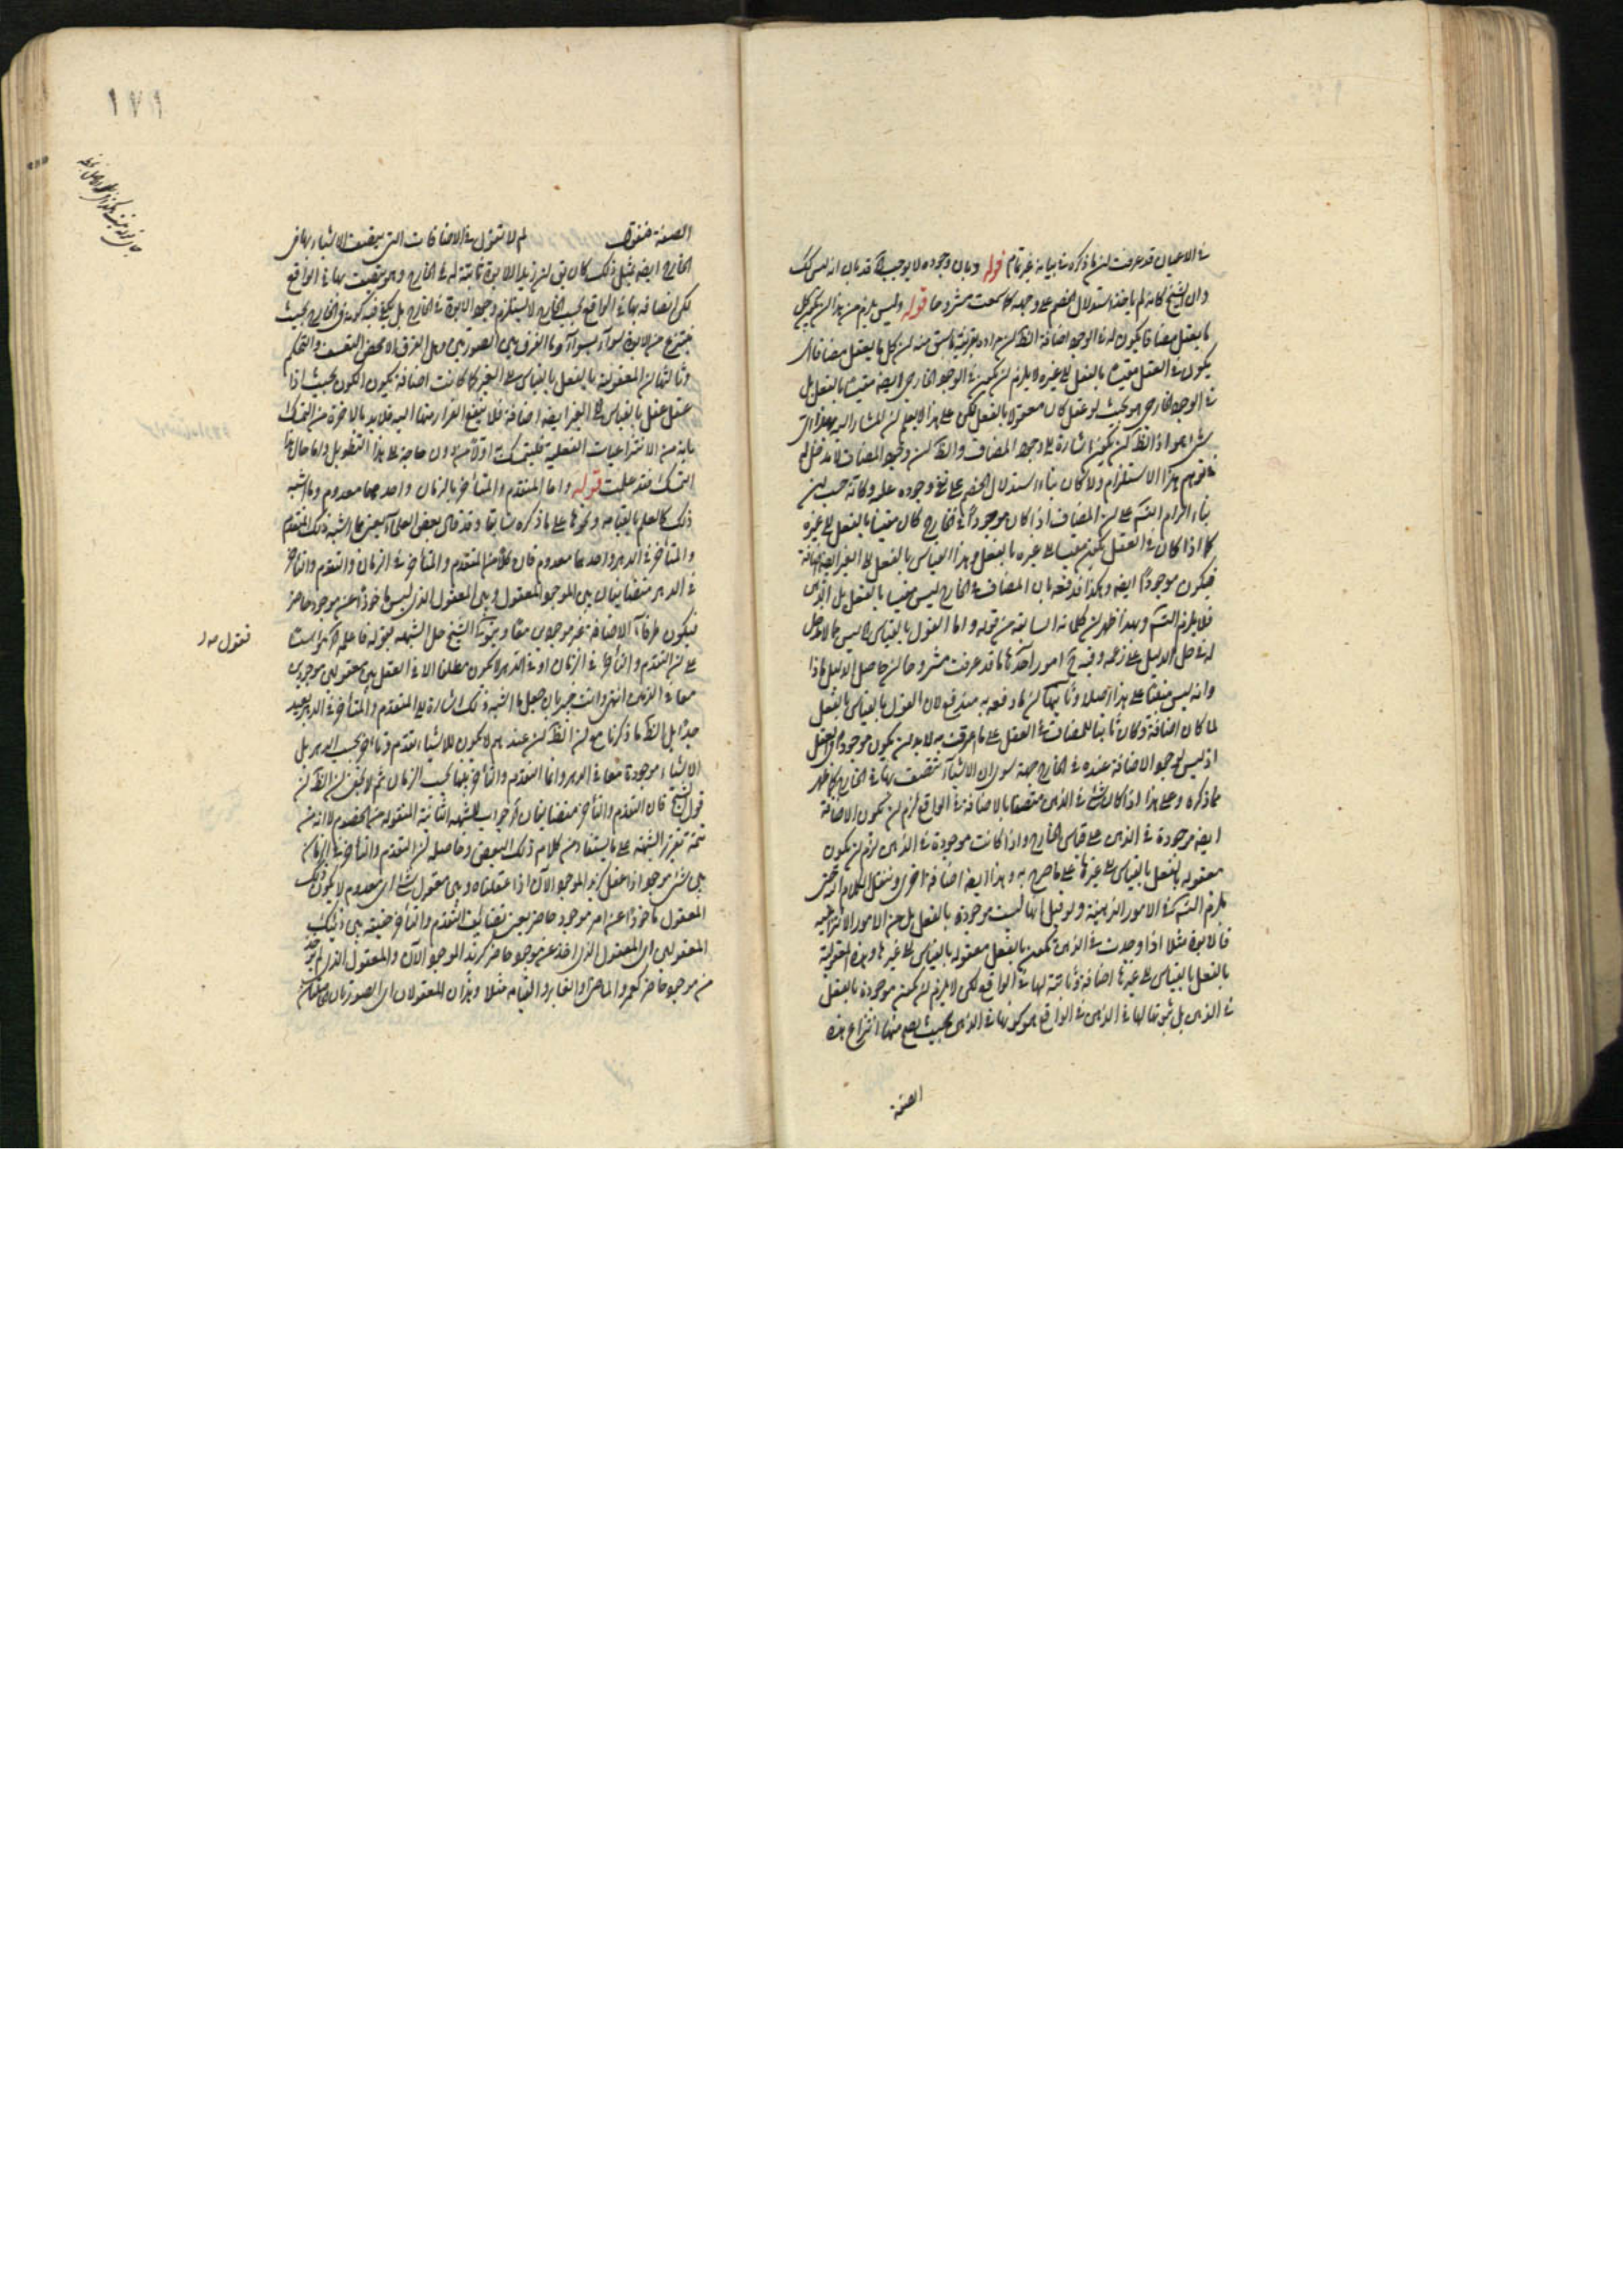 في الاعيان قد عرفت ان ما ذكره في بيانه غير تام قوله وبان وجوده لا يوجب قد بان انه ليس كك
وان الشيخ كانه لم ياخذ استدلال الخصم على وجهه كما سمعت مشروحا قوله وليس يلزم من هذا ان يكون كل
ما يعقل مضافا يكون له في الوجود اضافة الظ ان مراده بقرينة ما سبق منه ان كل ما يعقل مضافا اى
يكون في العقل مقيسا بالفعل الى غيره لا يلزم ان يكون في الوجود الخارجى ايضا مقيسا بالفعل بل
في الوجود الخارجى هو بحيث لو عقل كان معقولا بالفعل لكن على هذا لا يعلم ان المشار اليه بهذا اى
شئ هو اذ الظ ان يكون اشارة الى وجود المضاف والظ ان وجود المضاف لا مدخل له
في توهم هذا الاستلزام ولا كان بناء استدلال الخصم على نحو وجوده علم وكانه حسب ان
بناء الزام التس على ان المضاف اذا كان موجودا في الخارج كان مقيسا بالفعل الى غيره
كما اذا كان في العقل يكون مقيسا الى غيره بالفعل وهذا القياس بالفعل الى الغير ايضا اضافة
فيكون موجودا ايضا وهكذا فدفعه بان المضاف في الخارج ليس مقيسا بالفعل بل في الذهن
فلا يلزم التس وبهذا ظهر ان كلماته السابقة من قوله واما القول بالقياس ليس مما لا دخل
له في حل الدليل على زعمه وفيه ح امور احدها ما قد عرفت مشروحا ان حاصل الدليل ماذا
وانه ليس مبنيا على هذا اصلا وثانيها ان ما دفعه به مندفع لان القول بالقياس بالفعل
لما كان اضافة وكان ثابتا للمضاف في العقل على ما اعترفت به لا بد ان يكون موجودا في العقل
اذ ليس لوجود الاضافة عنده في الخارج جهة سوى ان الاشياء تتصف بها في الخارج كما ظهر
مما ذكره وعلى هذا اذا كان شئ في الذهن متصفا بالاضافة في الواقع لزم ان تكون الاضافة
ايضا موجودة في الذهن على قياس الخارج واذا كانت موجودة في الذهن لزم ان يكون
معقولة بالفعل بالقياس الى غيرها على ما صرح به وهذا ايضا اضافة اخرى وننقل الكلام اليه حتى
يلزم التس في الامور الذهنية ولو قيل انها ليست موجودة بالفعل بل من الامور الانتزاعية
فالابوة مثلا اذا وجدت في الذهن تكون بالفعل معقولة بالقياس الى غيرها وهذه المعقولية
بالفعل بالقياس الى غيرها اضافة وثابتة لها في الواقع لكن لا يلزم ان يكون موجودة بالفعل
في الذهن بل ثبوتها لها في الذهن في الواقع هو كونها في الذهن بحيث يصح منها انتزاع هذه
الصفة
١٧١
الصفة فنقول لم لا تقول في الاضافات التى يتصف الاشياء بها فى
الخارج ايضا بمثل ذلك كان يق ان زيدا الابوة ثابتة له في الخارج وهو يتصف بها في الواقع
لكن اتصافه بها في الواقع بحسب الخارج لا يستلزم وجود الابوة في الخارج بل يكفى فيه كونه في الخارج بحيث
ينتزع منه الابوة سواء بسواء وما الفرق بين الصورتين وهل الفرق الا محض التعسف والتحكم
وثالثها ان المعقولية بالفعل بالقياس الى الغير كما كانت اضافة يكون الكون بحيث اذا
عقل عقل بالقياس الى الغير ايضا اضافة فلا ينفع الفرار منها اليه فلا بد بالاخرة من التمسك
بانه من الانتزاعيات الفعلية فليتمسك اولا من دون حاجة الى هذا التطويل واما حال هذا
التمسك فقد علمت قوله واما المتقدم والمتأخر بالزمان واحدهما معدوم وما اشبه
ذلك كالعلم بالقيامة ونحوها على ما ذكره سابقا وقد قال بعض العلماء يعنى بما اشبه ذلك المتقدم
والمتأخر في الدهر واحدهما معدوم فان كلا من المتقدم والمتأخر في الزمان والتقدم والتأخر
في الدهر متضايفان بين الموجود المعقول وبين المعقول الذى ليس ماخوذا عن موجود حاضر
فيكون طرفا الاضافة غير موجودين معا وينحو الشيخ حل الشبهة بقوله فاعلم
فنقول صور
على ان التقدم والتأخر في الزمان او في الدهر لا يكون مطلقا الا في العقل بين معقولين موجودين
معا في الذهن انتهى وانت خبير بان جعل ما اشبه ذلك اشارة الى المتقدم والمتأخر في الدهر بعيد
جدا بل الظ ما ذكرنا مع ان الظ ان عندهم لا يكون للاشياء تقدم وتأخر بحسب الدهر بل
الاشياء موجودة معا في الدهر وانما التقدم والتأخر بينها بحسب الزمان ثم لا يخفى ان الظ ان
قول الشيخ فان التقدم والتأخر متضايفان جواب للشبهة الثانية المنقولة من الخصوم لا انه من
تتمة تقرير الشبهة على ما يستفاد من كلام ذلك البعض وحاصله ان التقدم والتأخر في الزمان
بين شئ موجود اذا عقل كزيد الموجود الآن اذا عقلناه وبين معقول شئ اى معدوم لا يكون ذلك
المعقول ماخوذا عن امر موجود حاضر يعنى تضايف التقدم والتأخر حقيقة بين ذينك
المعقولين اى المعقول الذى اخذ عن موجود حاضر كزيد الموجود الآن والمعقول الذى لم يؤخذ
من موجود حاضر كعمرو الماضى والغابر والقيامة مثلا وهذان المعقولان اى الصورتان